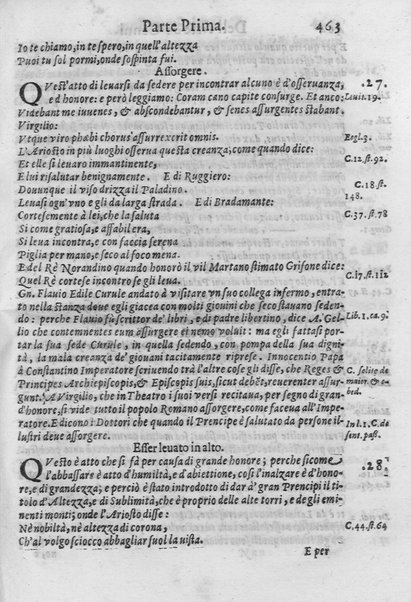 Parte Prima. 463
Io te chiamo, in te spero, in quell'altezza
Puoi tu sol pormi, onde sospinta fui.
Assorgere.
QVest'atto di leuarsi da sedere per incontrar alcuno è d'osseruanza, .27.
e d'honore: e però leggiamo: Coram cano capite consurge. Et anco: Leuit.19.
Videbant me iuuenes, & abscondebantur, & senes assurgentes stabant.
Virgilio:
Vtque viro phœbi chorus assurrexerit omnis. Eegl.3.
L'Ariosto in più luoghi osserua questa creanza, come quando dice:
Et elle si leuaro immantinente, C.12.st.92.
E lui risalutar benignamente. E di Ruggiero:
Douunque il viso drizza il Paladino. C.18.st.
Leuasi ogn'vno e gli da larga strada. E di Bradamante: 148.
Cortesemente à lei, che la saluta C.37.st.78
Si come gratiosa, e affabil era,
Si leua incontra, e con faccia serena
Piglia per mano, e seco al foco mena.
E del Rè Norandino quando honorò il vil Martano stimato Grifone dice:
Quel Rè cortese incontro se gli leua. C.17.st.112
Gn. Flauio Edile Curule andato à visitare vn suo collega infermo, entra-
to nella stanza doue egli giacea con molti gioueni che seco stauano seden-
do: perche Flauio fù scrittor de' libri, e di padre libertino, dice A. Gel- Lib.1.ca.9.
lio che contemnentes eum assurgere ei nemo voluit: ma egli fattasi por-
tar la sua sede Curule, in quella sedendo, con pompa della sua digni-
tà, la mala creanza de' giouani tacitamente riprese. Innocentio Papa
à Constantino Imperatore scriuendo trà l'altre cose gli disse, che Reges & C. solite de
Principes Archiepiscopis, & Episcopis suis, sicut debēt, reuerenter assur- maior. & o-
gunt. A Virgilio, che in Theatro i suoi versi recitaua, per segno di gran- bed.
d'honore, si vide tutto il popolo Romano assorgere, come faceua all'Impe-
ratore. E dicono i Dottori che quando il Prencipe è salutato da persone il- In l.1.C.de
lustri deue assorgere. sent. pass.
Esser leuato in alto.
QVesto è atto che si fà per causa di grande honore; perche sicome .28.
l'abbassare è atto d'humiltà, e d'abiettione, così l'inalzare è d'hono-
re, e di grandezza; e perciò è stato introdotto di dar à' gran Prencipi il ti-
tolo d'Altezza, e di Sublimità, che è proprio delle alte torri, e degli emi-
nenti monti; onde l'Ariosto disse:
Nè nobiltà, nè altezza di corona, C.44.st.64
Ch'al volgo sciocco abbagliar suol la vista.
E per